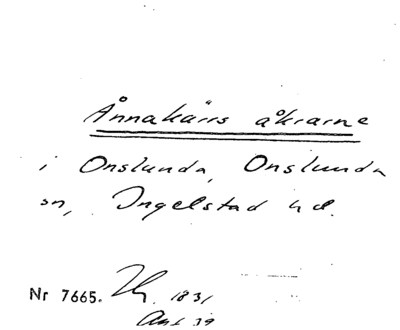 Ånnakärs åkrarne
i Onslunda, Onslunda
sn, Ingelstad hd.
Nr 7665. 1831
Akt 39